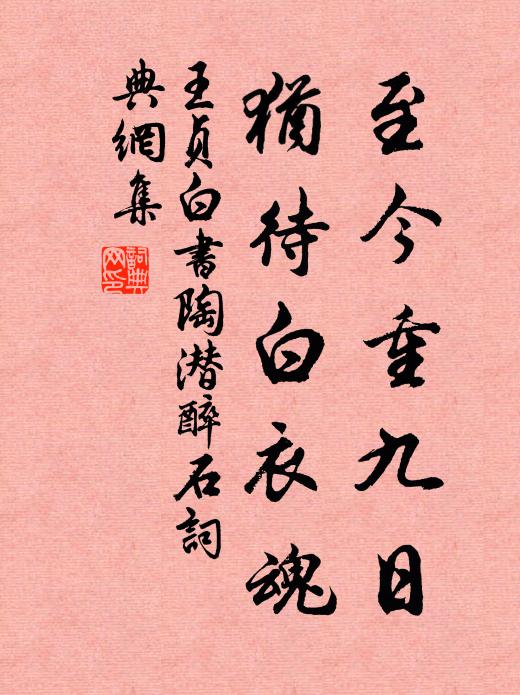 至今重九日
猶待白衣魂
王貞白書陶潜醉石詞
典網集
詞典
网印